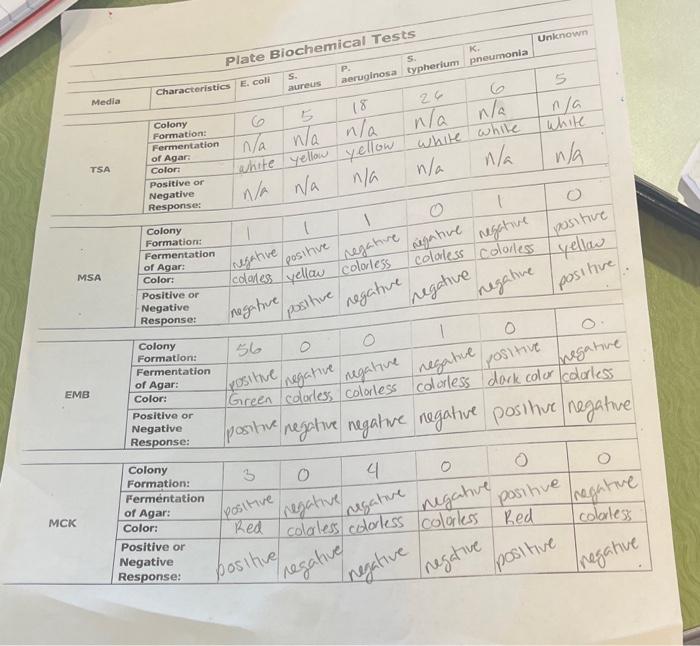 Plate Biochemical Tests
Media Characteristics E. coli S. aureus P. aeruginosa S. typherium K. pneumonia Unknown
TSA
Colony Formation: 6 5 18 26 6 5
Fermentation of Agar: n/a n/a n/a n/a n/a n/a
Color: white yellow yellow white white white
Positive or Negative Response: n/a n/a n/a n/a n/a n/a
MSA
Colony Formation: 1 1 1 0 1 0
Fermentation of Agar: negative positive negative negative negative positive
Color: colorless yellow colorless colorless colorless yellow
Positive or Negative Response: negative positive negative negative negative positive
EMB
Colony Formation: 56 0 0 1 0 0.
Fermentation of Agar: positive negative negative negative positive negative
Color: Green colorless colorless colorless dark color colorless
Positive or Negative Response: positive negative negative negative positive negative
MCK
Colony Formation: 3 0 4 0 0 0
Fermentation of Agar: positive negative negative negative positive negative
Color: Red colorless colorless colorless Red colorless
Positive or Negative Response: positive negative negative negative positive negative